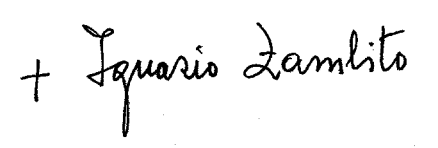 + Ignazio Zambito